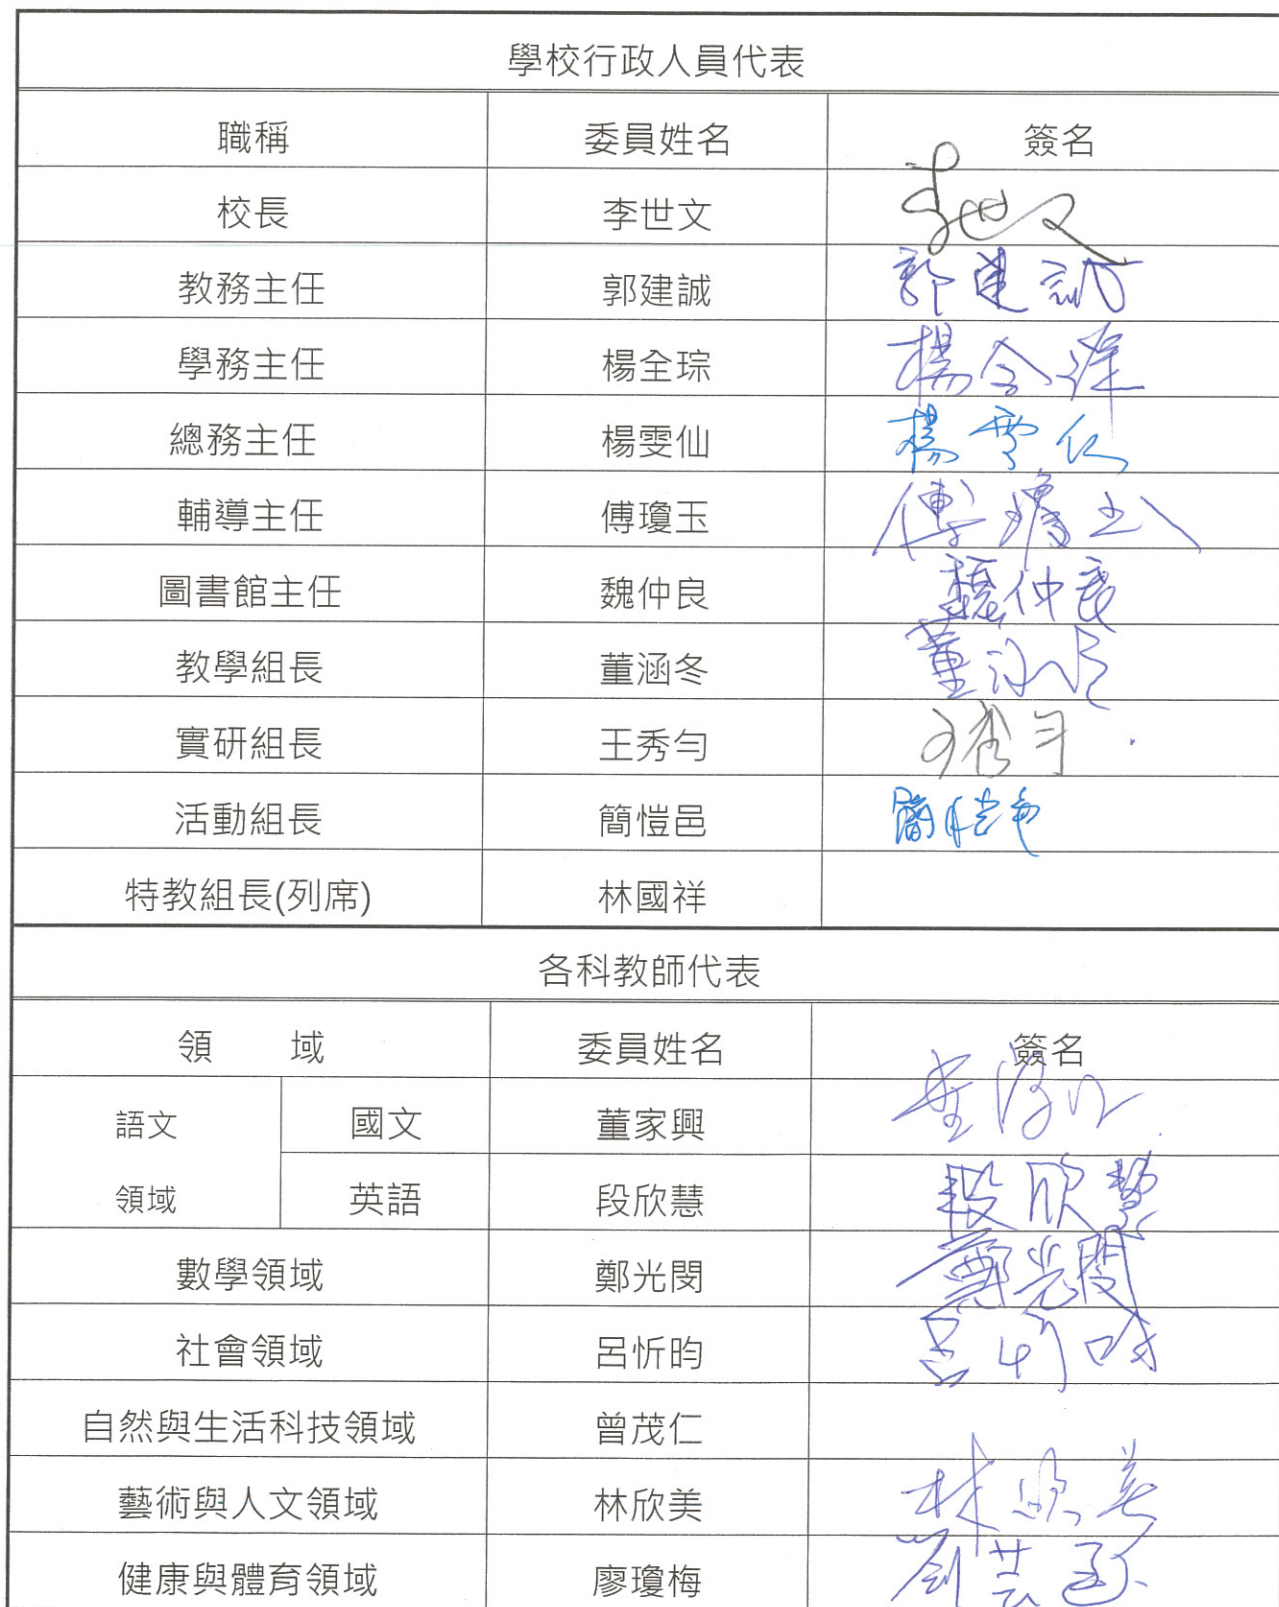 學校行政人員代表
職稱 委員姓名 簽名
校長 李世文 李世文
教務主任 郭建誠 郭建誠
學務主任 楊全琮 楊全琮
總務主任 楊雯仙 楊雯仙
輔導主任 傅瓊玉 傅瓊玉
圖書館主任 魏仲良 魏仲良
教學組長 董涵冬 董涵冬
實研組長 王秀勻 王秀勻
活動組長 簡愷邑 簡愷邑
特教組長(列席) 林國祥
各科教師代表
領 域 委員姓名 簽名
語文 國文 董家興
領域 英語 段欣慧 段欣慧
數學領域 鄭光閔 鄭光閔
社會領域 呂忻昀 呂忻昀
自然與生活科技領域 曾茂仁
藝術與人文領域 林欣美 林欣美
健康與體育領域 廖瓊梅